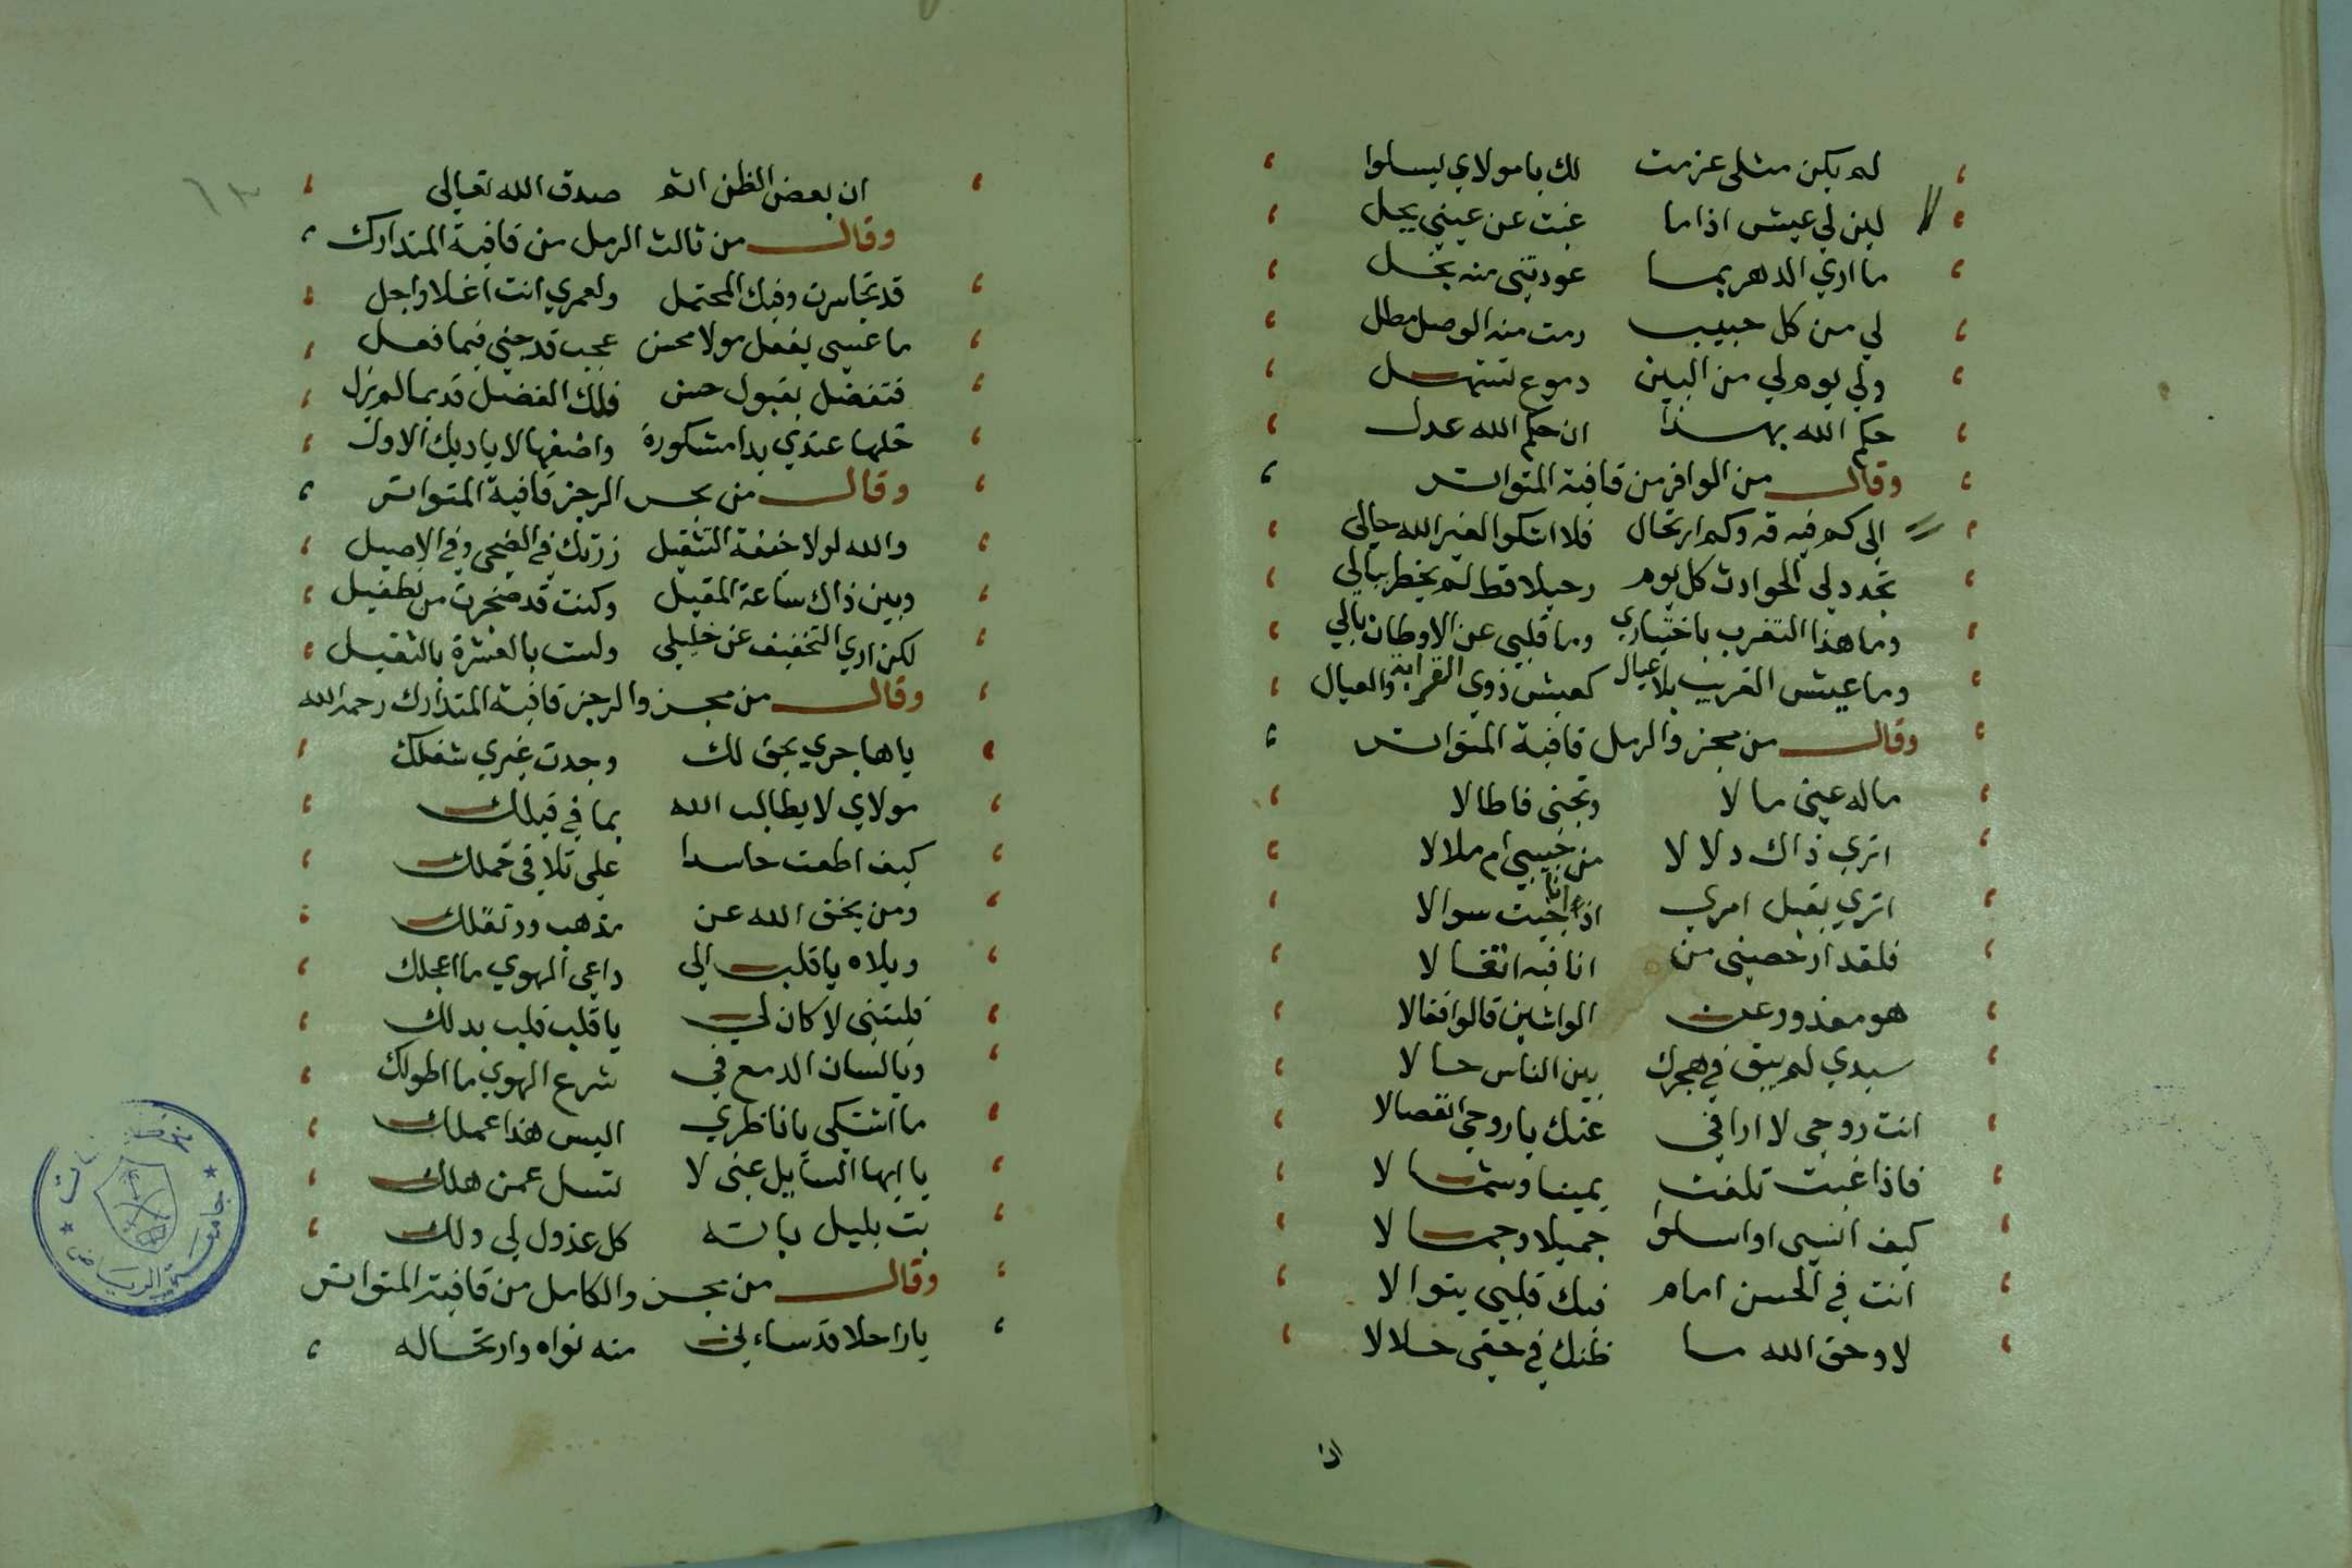 لم يكن مثلي عزمت لك يا مولاي ليسلوا
لين لي عيش اذا ما غبت عن عيني يحل
ما اري الدهر بما عودتني منه بخل
لي من كل حبيب رمت منه الوصل مطل
ولي يوم لي من البين دموع تستهل
حكم الله بهذا ان حكم الله عدل
وقال من الوافر من قافية المتواتر
الى كم فيه قد وكم ارتحال فلا اشكوا لغير الله حالي
تجدد لي الحوادث كل يوم رحيلا قط لم يخطر ببالي
وما هذا التغرب باختياري وما قلبي عن الاوطان بالي
وما عيش الغريب بلا عيال كعيش ذوي القرابة والعيال
وقال من مجزو الرمل قافية المتواتر
ماله عني مالا وتجني فاطالا
اتري ذاك دلالا من حبيبي ام ملالا
اتري يقبل امري اذا انا جيت سوالا
فلقد ارخصني من انا فيه اتغالا
هو معذور عن الواشين قالوا فقالا
سيدي لم يبق في هجرك بين الناس حالا
انت روحي لا اراني عنك يا روحي انفصالا
فاذا غبت تلفت يمينا وشمالا
كيف انسى او اسلو جميلا وجمالا
انت في الحسن امام فيك قلبي يتوالا
لا وحق الله ما ظنك في حقي حلالا
ان بعض الظن اثم صدق الله تعالى
وقال من ثالث الرمل من قافية المتدارك
قد تجاسرت وفيك المحتمل ولعمري انت اغلا واجل
ما عسي يفعل مولا محسن عجب قد جني فيما فعل
فتفضل بقبول حسن فلك الفضل قديما لم يزل
خلها عندي يدا مشكورة واضفها لاياديك الاول
وقال من بحر الرجز قافية المتواتر
والله لولا خيفة التثقيل زرتك في الضحى وفي الاصيل
وبين ذاك ساعة المقيل وكنت قد ضجرت من تطفيل
لكن اري التخفيف عن خليلي ولست بالعشرة بالثقيل
وقال من مجزو الرجز قافية المتدارك رحمه الله
يا هاجري يحق لك وجدت غيري شغلك
مولاي لا يطالب الله بما في قبلك
كيف اطعت حاسدا على تلافي حملك
ومن بحق الله عن مذهب ود نقلك
ويلاه يا قلب الي داعي الهوي ما اعجلك
فليتني لا كان لي يا قلب قلب بدلك
ويا لسان الدمع في شرع الهوي ما اطولك
ما اشتكي يا ناظري اليس هذا عملك
يا ايها السايل عني لا تسل عمن هلك
بت بليل باته كل عذول لي ولك
وقال من مجزو الكامل من قافية المتواتر
يا راحلا قد ساءني منه نواه وارتحاله